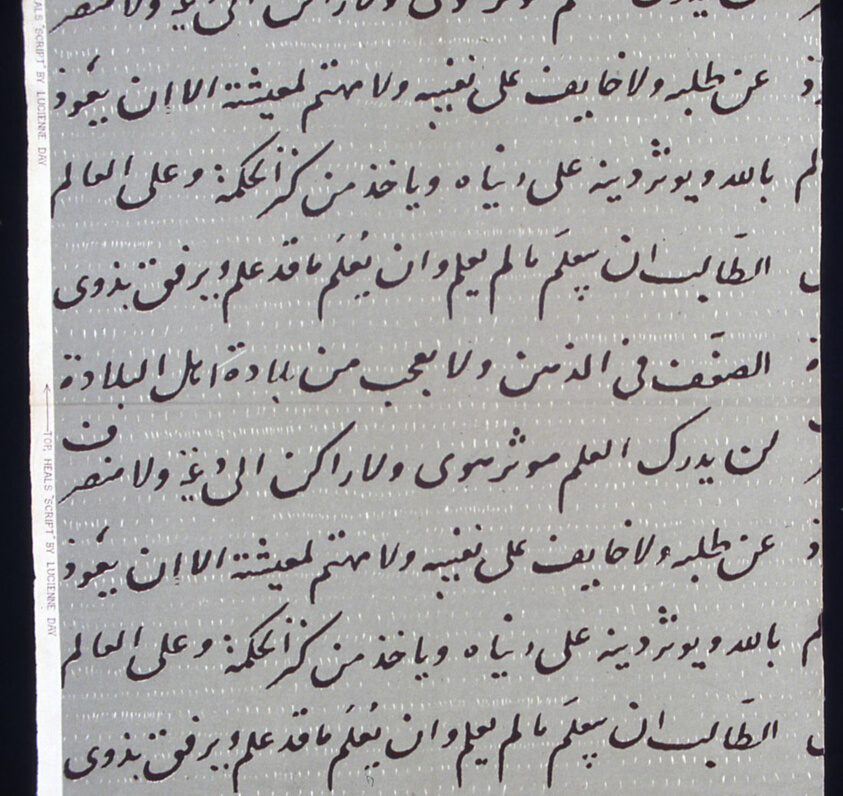 عن طلبه ولا خايف على نفسه ولا مهتم لمعيشته الا ان يعوذ
بالله ويوثر دينه على دنياه وياخذ من كنز الحكمة وعلى العالم
الطَالب ان يتعلَم ما لم يعلم وان يُعلَم ما قد علم ويرفق بذوى
الضعف في الذهن ولا يعجب من بلادة اهل البلادة
لن يدرك العلم موثر هوى ولا راكن الى ولا منصرف
عن طلبه ولا خايف على نفسه ولا مهتم لمعيشته الا ان يعوذ
بالله ويوثر دينه على دنياه وياخذ من كنز الحكمة وعلى العالم
الطَالب ان يتعلَم ما لم يعلم وان يُعلَم ما قد علم ويرفق بذوى
ALS "SCRIPT" BY LUCIENNE DAY
TOP, HEALS "SCRIPT" BY LUCIENNE DAY